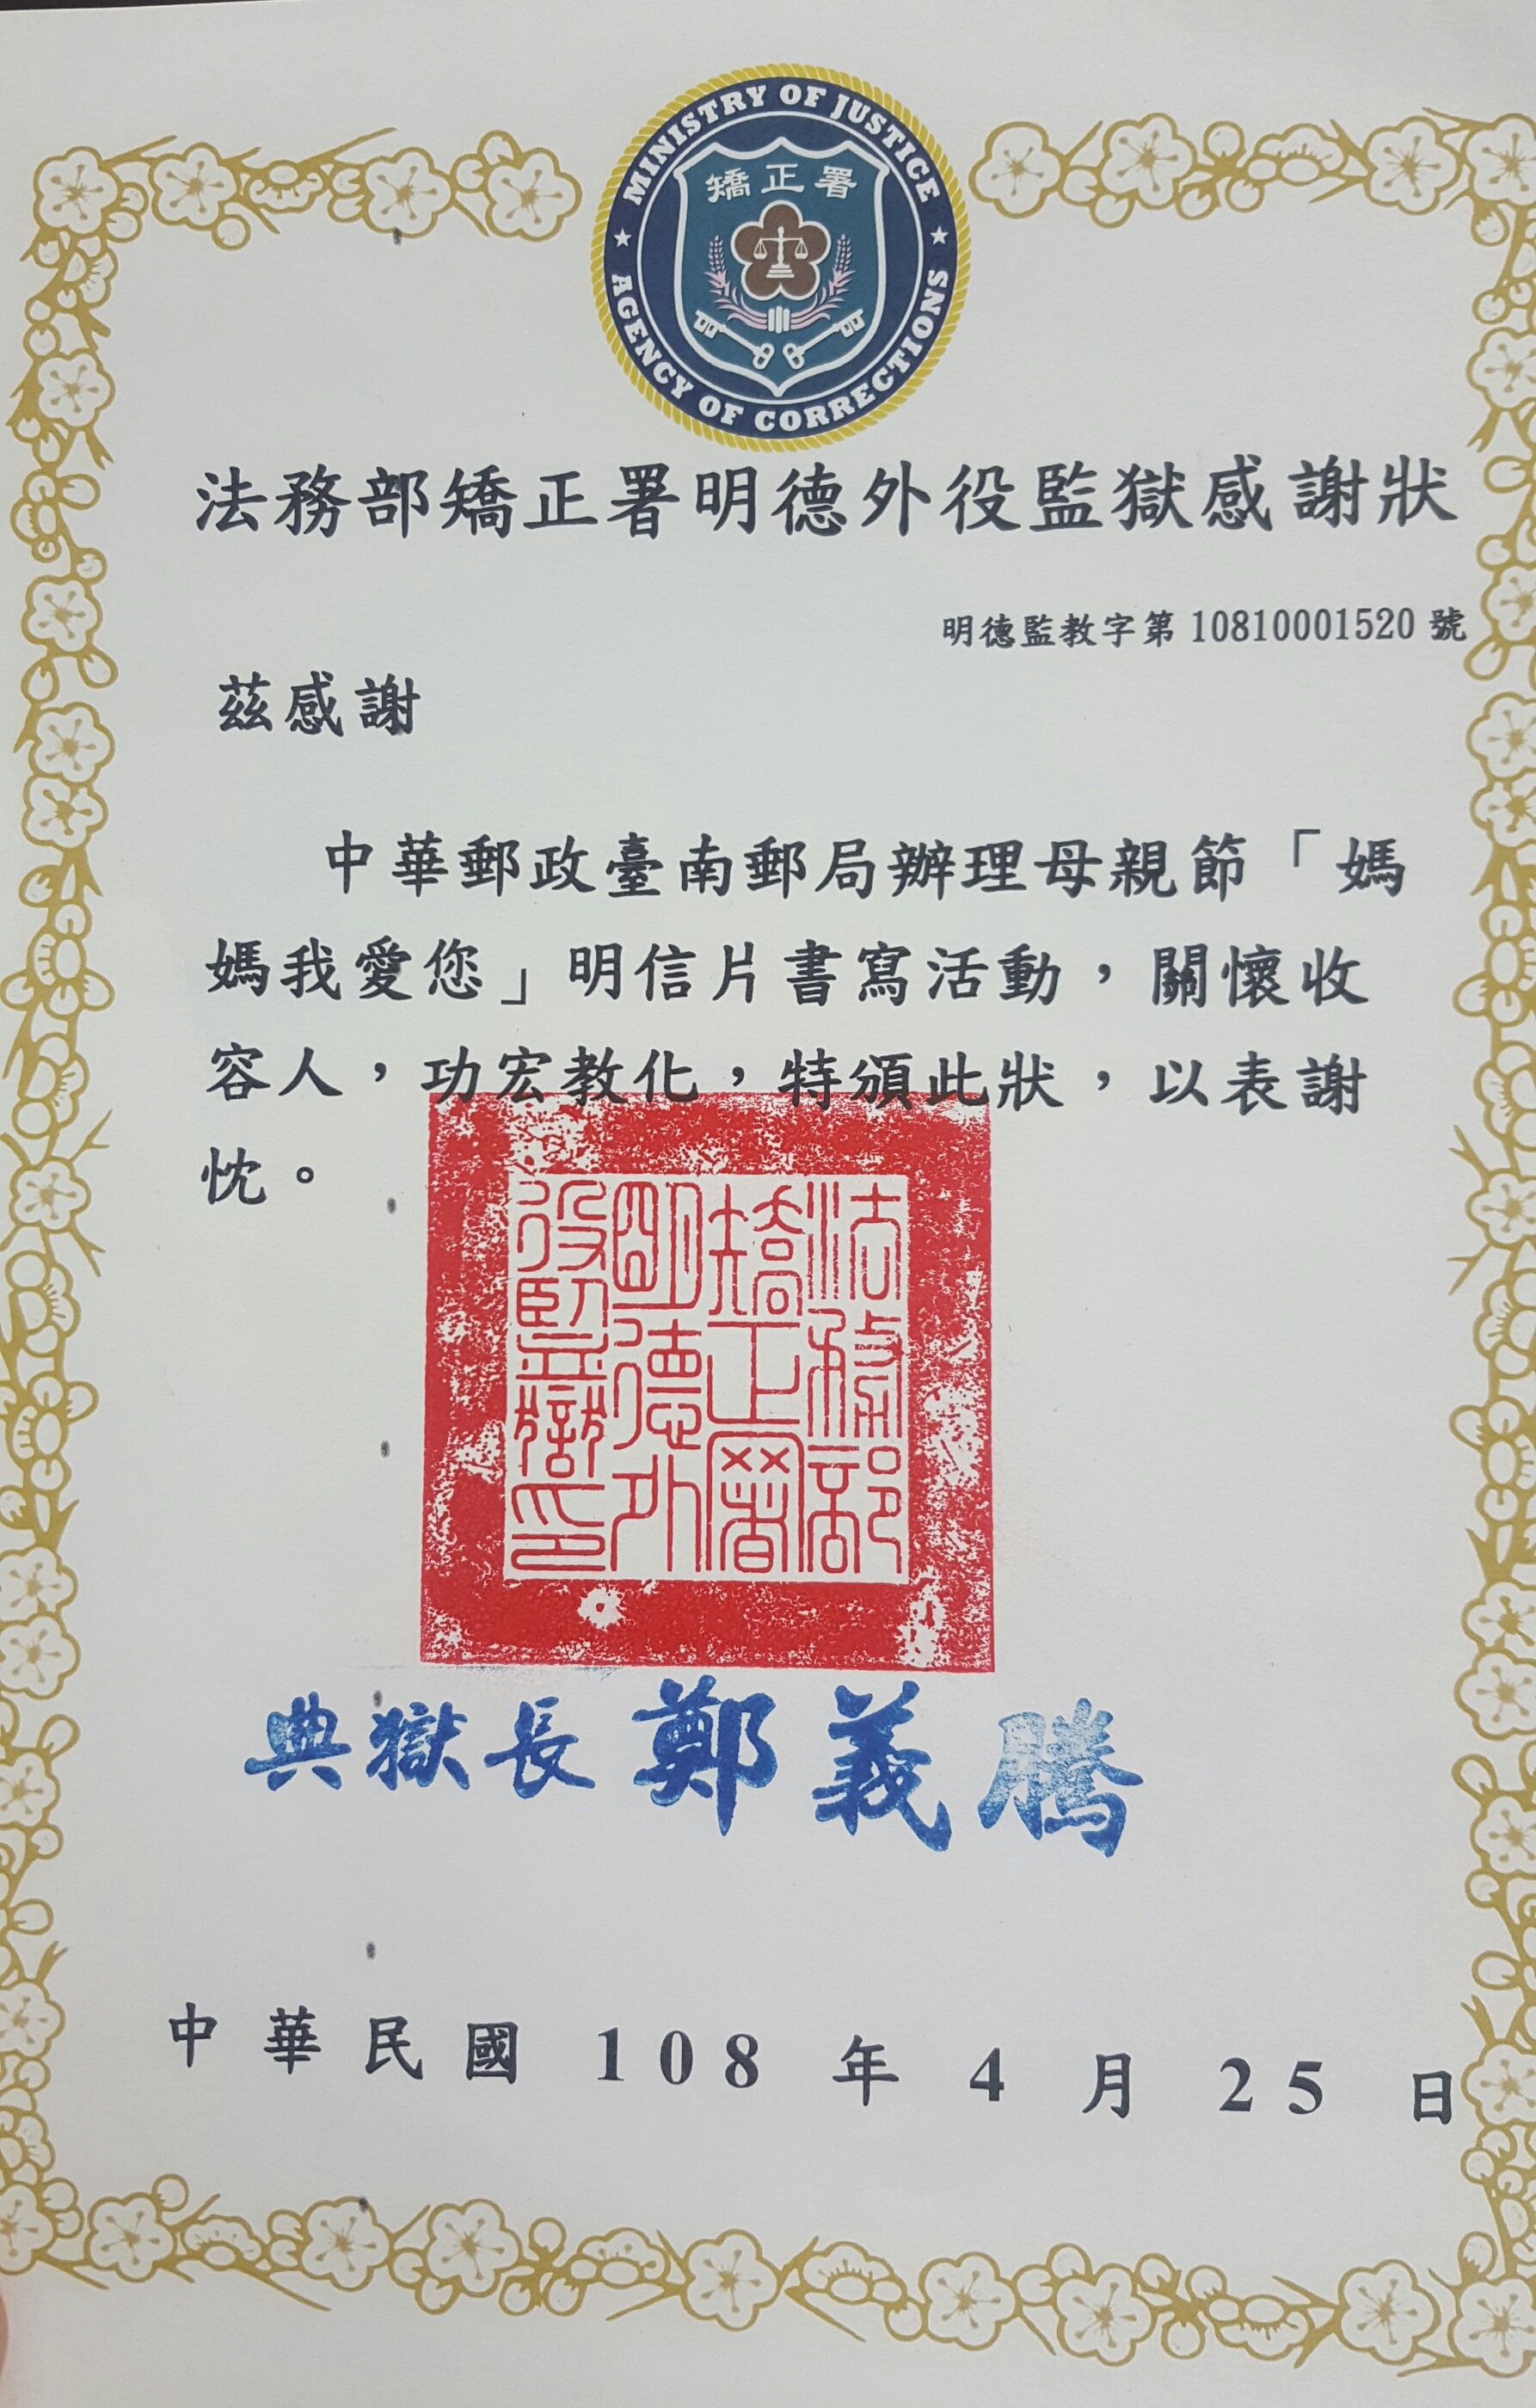 MINISTRY OF JUSTICE
矯正署
AGENCY OF CORRECTIONS
法務部矯正署明德外役監獄感謝狀
明德監教字第10810001520號
茲感謝
中華郵政臺南郵局辦理母親節「媽
媽我愛您」明信片書寫活動，關懷收
容人，功宏教化，特頒此狀，以表謝
忱。
法務部
矯正署
明德外
役監獄印
典獄長鄭義騰
中華民國 108 年 4 月 25 日